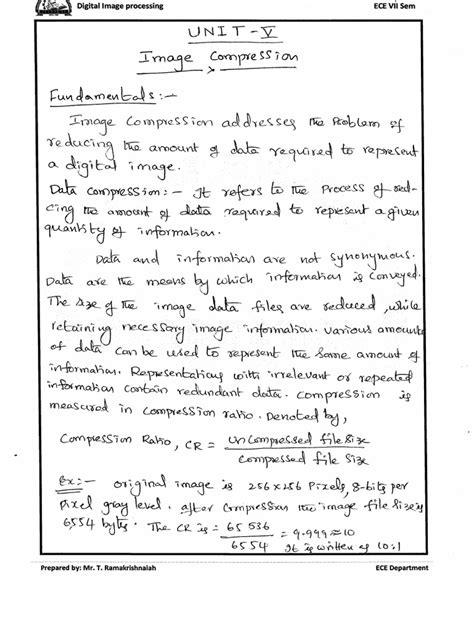 Digital Image processing ECE VII Sem
UNIT-V
Image Compression
Fundamentals :-
Image Compression addresses the Problem of
reducing the amount of data required to represent
a digital image.
Data Compression :- It refers to the Process of red-
cing the amount of data required to represent a given
quantity of information.
Data and information are not synonymous.
Data are the means by which information is conveyed.
The size of the image data files are reduced, while
retaining necessary image information. Various amounts
of data can be used to represent the same amount of
information. Representations with irrelevant or repeated
information contain redundant data. Compression is
measured in compression ratio. Denoted by,
Compression Ratio, CR = UnCompressed file Size
Compressed file Size
Ex :- original image is 256x256 Pixels, 8-bits per
Pixel gray level. after Compression the image file size is
6554 bytes. The CR is = 65 536
6554 = 9.999 ≈ 10
It is written as 10:1
Prepared by: Mr. T. Ramakrishnaiah ECE Department